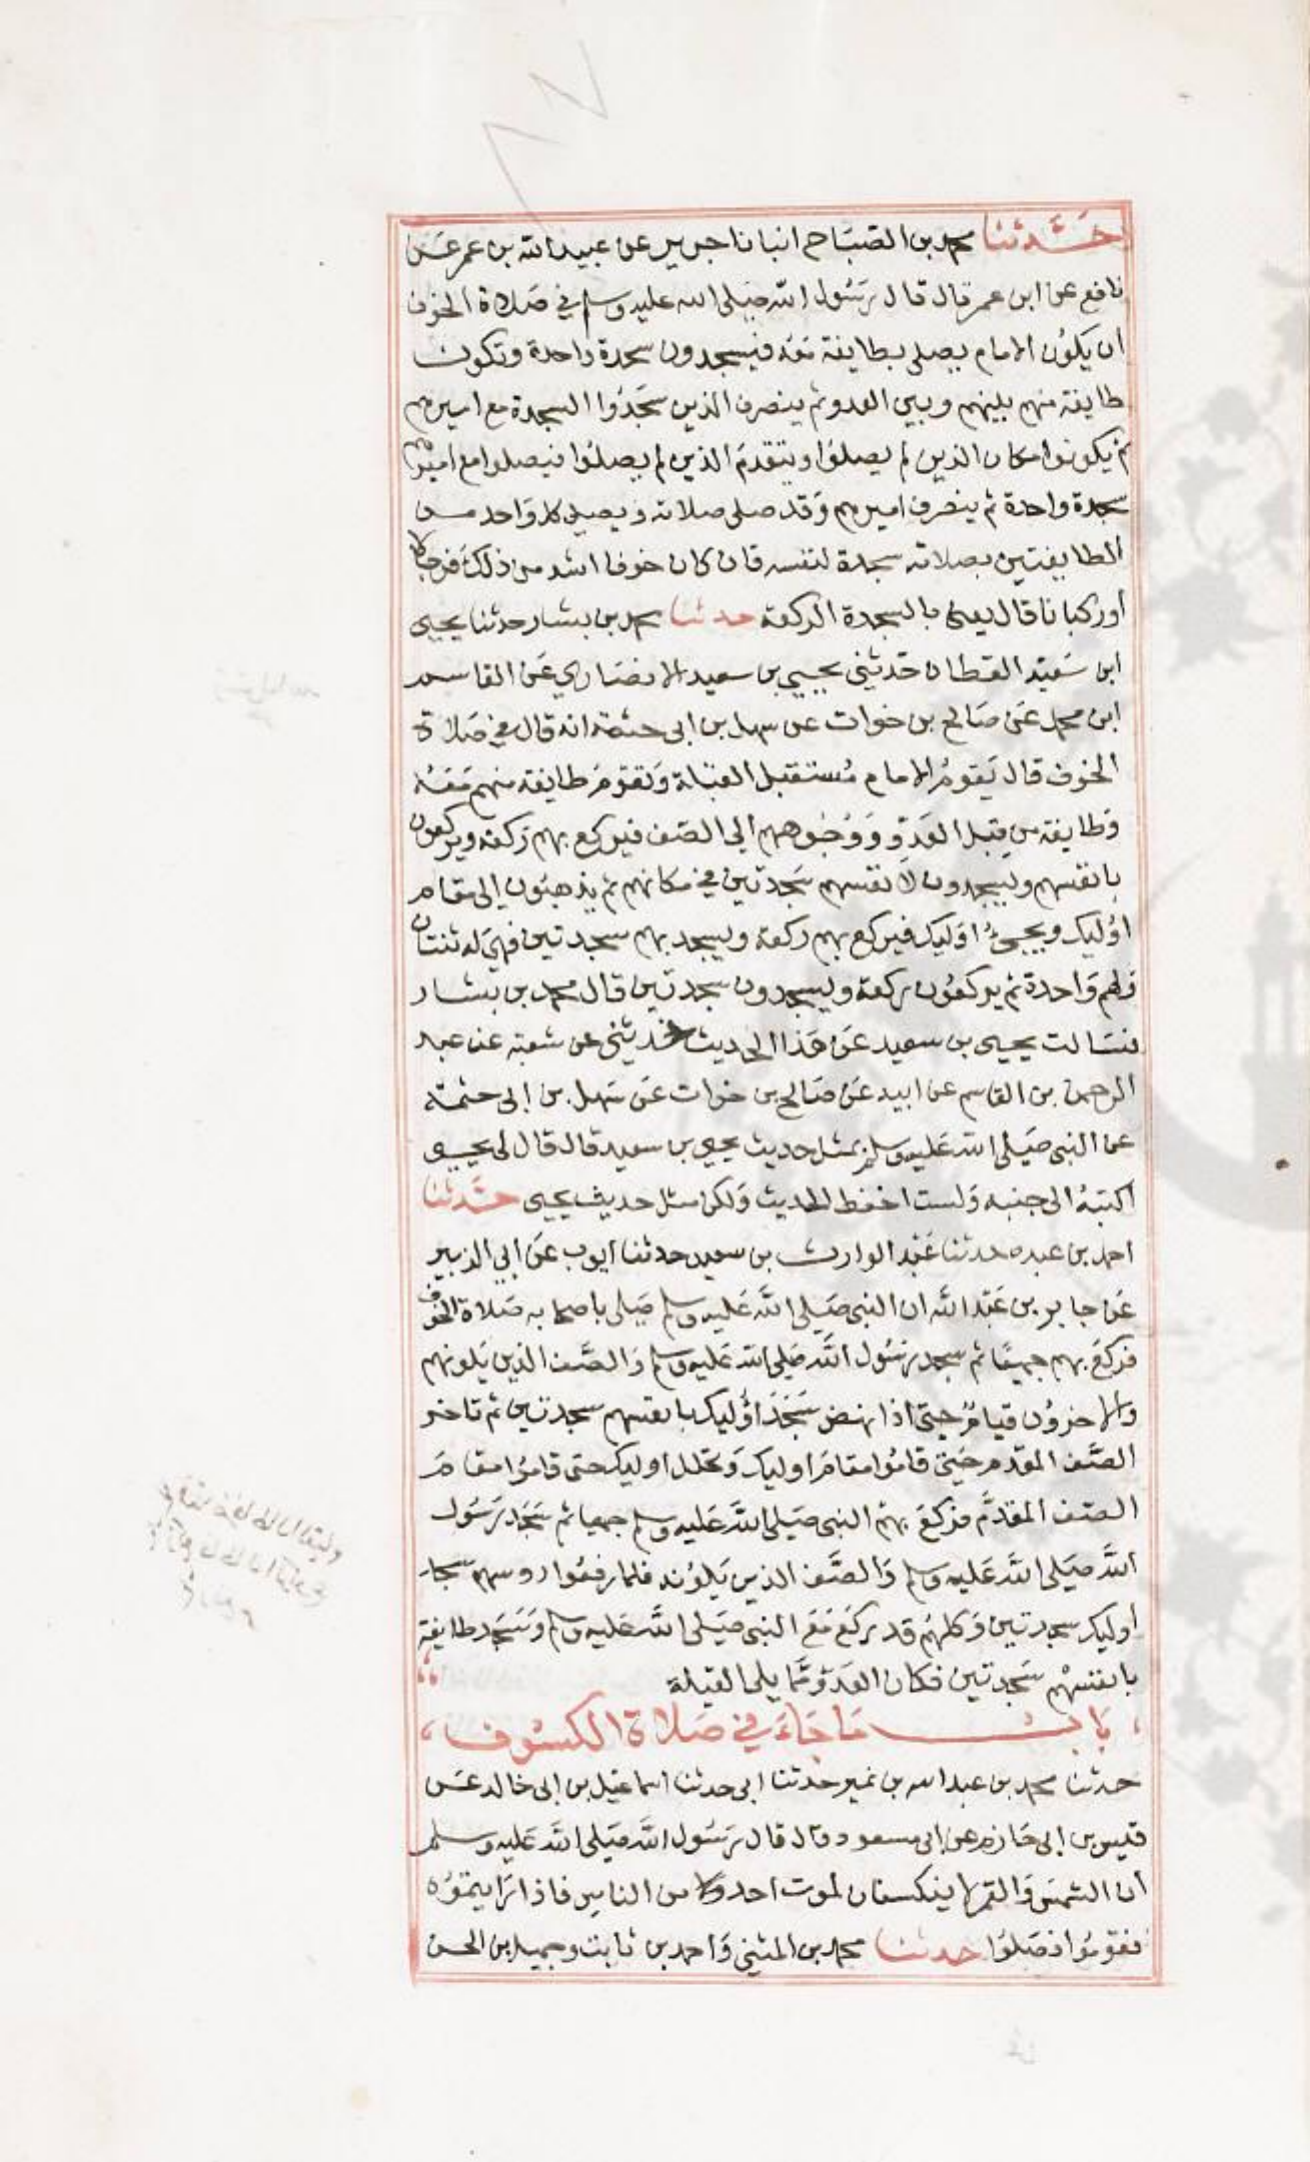 حدثنا محمد بن الصباح انبانا جرير عن عبيد الله بن عمر عن
نافع عن ابن عمر قال قال رسول الله صلى الله عليه وسلم في صلاة الخوف
ان يكون الامام يصلي بطايفة معه فيسجدون سجدة واحدة وتكون
طايفة منهم بينهم وبين العدو ثم ينصرف الذين سجدوا السجدة مع اميرهم
ثم يكونوا مكان الذين لم يصلوا ويتقدم الذين لم يصلوا فيصلوا مع اميرهم
سجدة واحدة ثم ينصرف اميرهم وقد صلى صلاته ويصلي كل واحد من
الطايفتين بصلاته سجدة لنفسه فان كان خوفا اشد من ذلك فرجالا
اوركبانا قال يعني بالسجدة الركعة حدثنا محمد بن بشار حدثنا يحيى
ابن سعيد القطان حدثني يحيى بن سعيد الانصاري عن القاسم
ابن محمد عن صالح بن خوات عن سهل بن ابي حثمة انه قال في صلاة
الخوف قال يقوم الامام مستقبل القبلة وتقوم طايفة منهم معه
وطايفة من قبل العدو ووجوههم الى الصف فيركع بهم ركعة ويركعون
بانفسهم ويسجدون لانفسهم سجدتين في مكانهم ثم يذهبون الى مقام
اوليك ويجيء اوليك فيركع بهم ركعة ويسجد بهم سجدتين فهي له ثنتان
ولهم واحدة ثم يركعون ركعة ويسجدون سجدتين قال محمد بن بشار
فسالت يحيى بن سعيد عن هذا الحديث فحدثني عن شعبة عن عبد
الرحمن بن القاسم عن ابيه عن صالح بن خوات عن سهل بن ابي حثمة
عن النبي صلى الله عليه وسلم بمثل حديث يحيى بن سعيد قال قال لي يحيى
اكتبه الى جنبه ولست احفظ الحديث ولكن مثل حديث يحيى حدثنا
احمد بن عبده حدثنا عبد الوارث بن سعيد حدثنا ايوب عن ابي الزبير
عن جابر بن عبد الله ان النبي صلى الله عليه وسلم صلى باصحابه صلاة الخوف
فركع بهم جميعا ثم سجد رسول الله صلى الله عليه وسلم والصف الذين يلونهم
والاخرون قيام حتى اذا نهض سجد اوليك بانفسهم سجدتين ثم تاخر
الصف المقدم حتى قاموا مقام اوليك وتخلل اوليك حتى قاموا مقام
الصف المقدم فركع بهم النبي صلى الله عليه وسلم جميعا ثم سجد رسول
الله صلى الله عليه وسلم والصف الذين يلونه فلما رفعوا روسهم سجد
اوليك سجدتين وكلهم قد ركع مع النبي صلى الله عليه وسلم وسجد طايفة
بانفسهم سجدتين فكان العدو مما يلي القبلة
باب ما جاء في صلاة الكسوف
حدثنا محمد بن عبد الله بن نمير حدثنا ابي حدثنا اسماعيل بن ابي خالد عن
قيس بن ابي حازم عن ابي مسعود قال قال رسول الله صلى الله عليه وسلم
ان الشمس والقمر لا ينكسفان لموت احد ولا من الناس فاذا رايتموه
فقوموا فصلوا حدثنا محمد بن المثنى واحمد بن ثابت وجميل بن الحسن